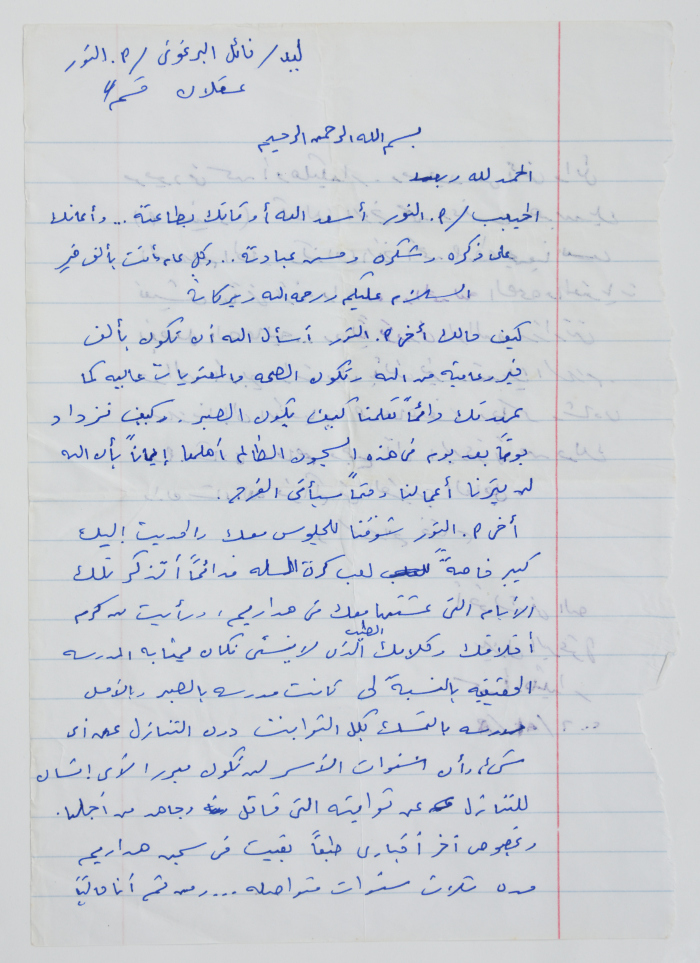 ليد/ نائل البرغوثي /م. النور
عسقلان قسم 4
بسم الله الرحمن الرحيم
الحمد لله وبعد
الحبيب /م. النور أسعد الله أوقاتك بطاعته .. وأعانك
على ذكره وشكره وحسن عبادته .. وكل عام وأنت بألف خير
السلام عليكم ورحمة الله وبركاته
كيف حالك أخي م. النور أسأل الله أن تكون بألف
خير وعافية من الله وتكون الصحه والمعنويات عاليه كما
عهدتك دائماً تعلمنا كيف يكون الصبر . وكيف نزداد
يوماً بعد يوم في هذه السجون الظالم أهلها إيماناً بأن الله
لن يترنا أعمالنا وحتماً سيأتي الفرج .
أخي م. النور شوقنا للجلوس معك والحديث إليك
كبير خاصةً لعب كرة السله فدائماً أتذكر تلك
الأيام التي عشتها معك في هداريم ، ورأيت من كرم
أخلاقك وكلامك الطيب الذي لا ينسى فكان بمثابه المدرسه
الحقيقيه بالنسبة لي كانت مدرسه بالصبر وبالأمل
مدرسه بالتمسك بكل الثوابت دون التنازل عن أي
شيء وأن سنوات الأسر لن تكون مبرر لأي إنسان
للتنازل عن ثوابته التي قاتل وجاهد من أجلها .
وبخصوص آخر أخباري طبعاً بقيت في سجن هداريم
مده ثلاث سنوات متواصله ... ومن ثم أنا حالياً